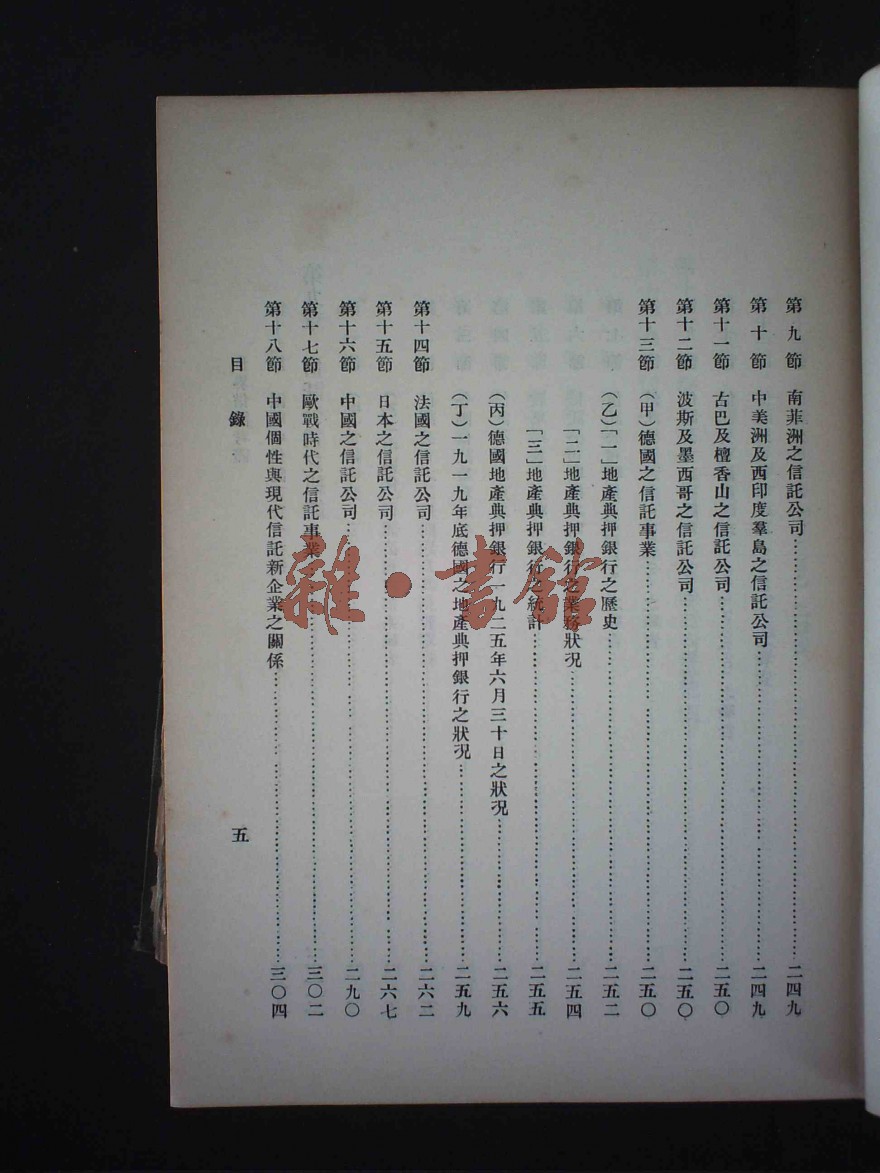 第九節 南菲洲之信託公司……二四九
第十節 中美洲及西印度羣島之信託公司……二四九
第十一節 古巴及檀香山之信託公司……二五〇
第十二節 波斯及墨西哥之信託公司……二五〇
第十三節 (甲)德國之信託事業……二五〇
(乙)「一」地產典押銀行之歷史……二五二
「二」地產典押銀行之業務狀況……二五四
「三」地產典押銀行之統計……二五五
(丙)德國地產典押銀行一九二五年六月三十日之狀况……二五六
(丁)一九一九年底德國之地產典押銀行之狀况……二五九
第十四節 法國之信託公司……二六二
第十五節 日本之信託公司……二六七
第十六節 中國之信託公司……二九〇
第十七節 歐戰時代之信託事業……三〇二
第十八節 中國個性與現代信託新企業之關係……三〇四
目錄 五
雜·書館